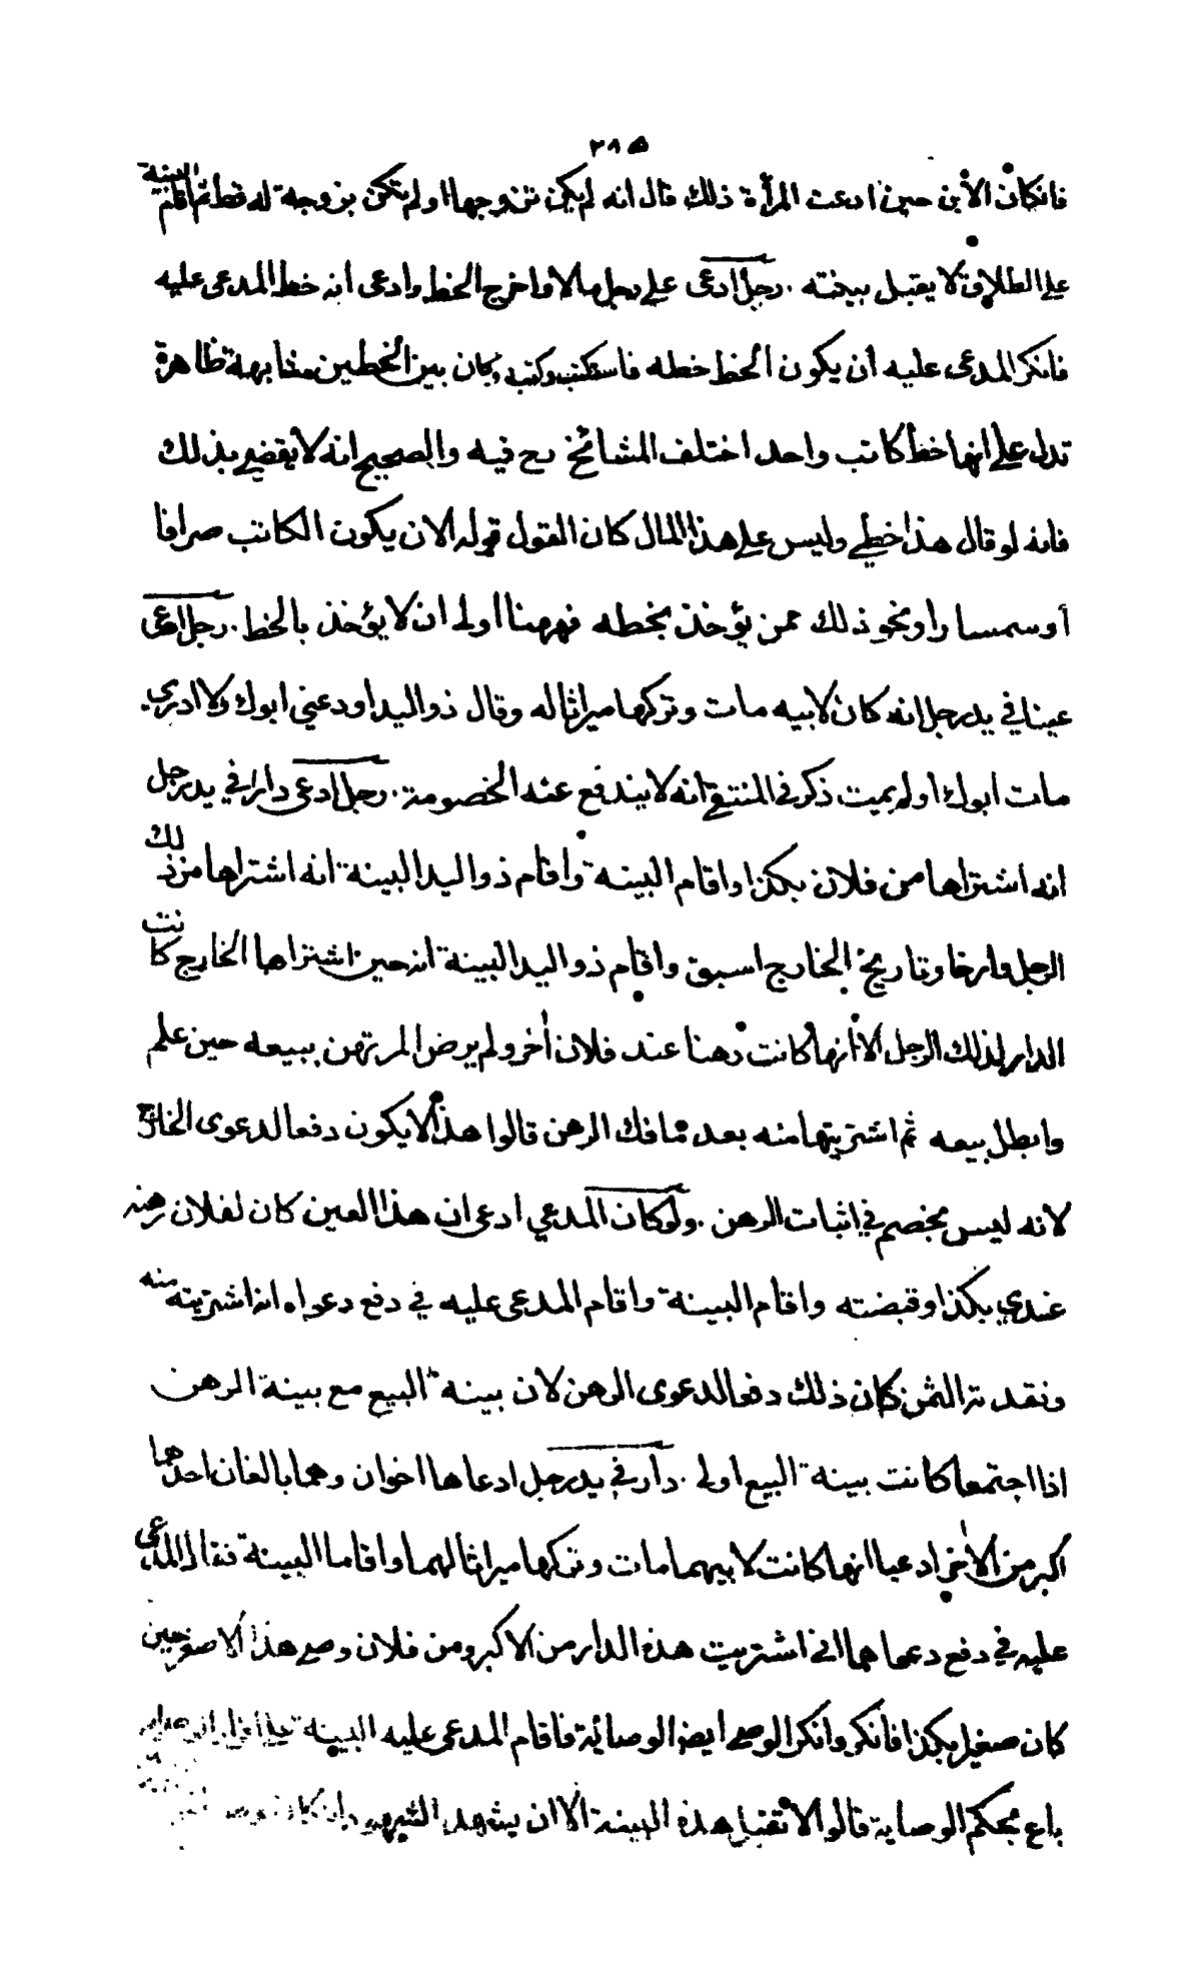 ٢٨٥
فان كان الابن حين ادعت المرأة ذلك قال انه لم يكن تزوجها او لم تكن بزوجة له قط ثم اقام البينة
على الطلاق لا يقبل بينته . رجل ادعى على رجل مالا واخرج الخط وادعى انه خط المدعى عليه
فانكر المدعى عليه أن يكون الخط خطه فاستكتب وكتب وكان بين الخطين مشابهة ظاهرة
تدل على انها خط كاتب واحد اختلف المشائخ رح فيه والصحيح انه لا يقضي بذلك
فانه لو قال هذا خطي وليس علي هذا المال كان القول قوله الا ان يكون الكاتب صرافا
أو سمسارا او نحو ذلك ممن يؤخذ بخطه فههنا اولى ان لا يؤخذ بالخط . رجل ادعى
عينا في يد رجل انه كان لابيه مات وتركها ميراثا له وقال ذو اليد اودعني ابوك ولا ادري
مات ابوك او لم يمت ذكر في المنتقى انه لا يندفع عنه الخصومة . رجل ادعى دارا في يد رجل
انه اشتراها من فلان بكذا واقام البينة واقام ذو اليد البينة انه اشتراها من ذلك
الرجل وارخا وتاريخ الخارج اسبق واقام ذو اليد البينة انه حين اشتراها الخارج كانت
الدار لذلك الرجل الا انها كانت رهنا عند فلان اخر ولم يرض المرتهن ببيعه حين علم
وابطل بيعه ثم اشتريتها منه بعد ما فك الرهن قالوا هذا لا يكون دفعا لدعوى الخارج
لانه ليس بخصم في اثبات الرهن . ولو كان المدعي ادعى ان هذا العين كان لفلان رهنه
عندي بكذا وقبضته واقام البينة واقام المدعى عليه في دفع دعواه انه اشتريته منه
ونقدته الثمن كان ذلك دفعا لدعوى الرهن لان بينة البيع مع بينة الرهن
اذا اجتمعا كانت بينة البيع اولى . دار في يد رجل ادعاها اخوان وهما بالغان احدهما
اكبر من الاخر ادعيا انها كانت لابيهما مات وتركها ميراثا لهما واقاما البينة فقال المدعى
عليه في دفع دعواهما اني اشتريت هذه الدار من الاكبر ومن فلان وصي هذا الاصغر حين
كان صغيرا بكذا فانكر وانكر الوصي ايضا الوصائية فاقام المدعى عليه البينة على
باع بحكم الوصاية قالوا لا تقبل هذه البينة الا ان يشهد الشهود